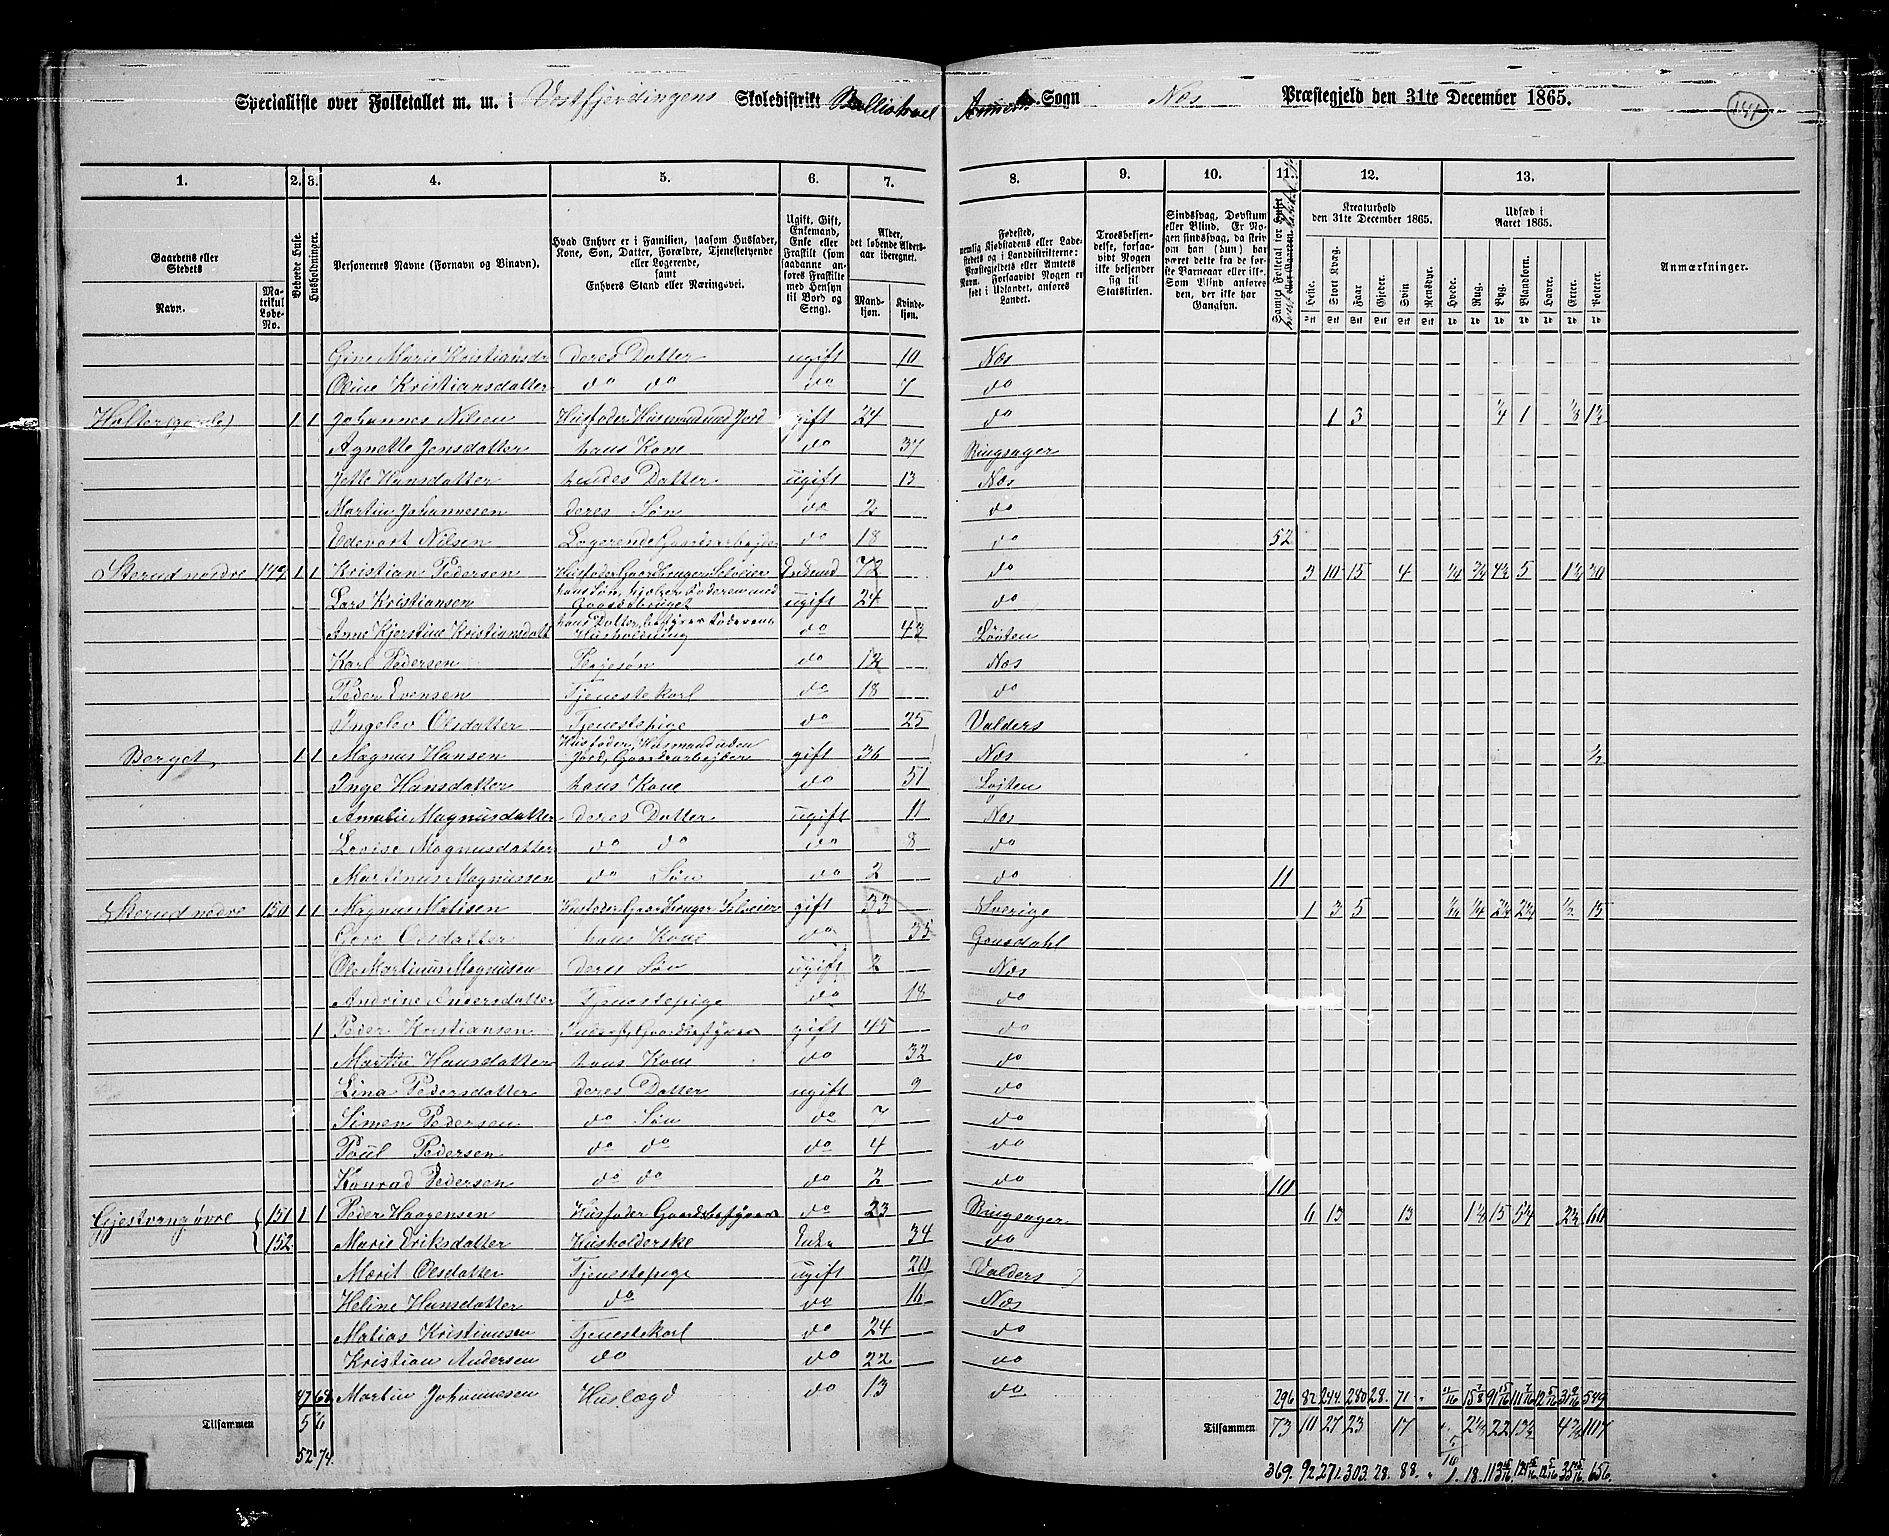 Specialliste over Folketallet m. m. i Vestfjerdingens Skoledistrikt Sogn Næs Præstegjeld den 31te December 1865. 141
1. 2. 3. 4. 5. 6. 7. 8. 9. 10. 11. 12. 13.
Gaardens eller Stedets Navn. Matrikul Løbe-No.
Beboede Huse.
Husholdninger.
Personernes Navne (Fornavn og Tilnavn).
Hvad Enhver er i Familien, saasom Husfader, Kone, Søn, Datter, Forældre, Tjenestetyende eller Logerende, samt Enhvers Stand eller Næringsvei.
Ugift, Gift, Enkemand, Enke eller Fraskilt (som saadanne anføres Fraskilte med Hensyn til Bord og Seng).
Alder, det løbende Aldersaar iberegnet. Mandkjøn. Kvindekjøn.
Fødested,
Troesbekjendelse, forsaavidt Nogen ikke bekjender sig til Statskirken.
Sindssvag, Døvstum eller Blind.
Kreaturhold den 31te December 1865. Heste. Stort Kvæg. Faar. Gjeder. Svin. Rensdyr.
Udsæd i Aaret 1865. Hvede. Rug. Byg. Blandkorn. Havre. Erter. Poteter.
Anmærkninger.
Gine Marie Kristiansdr deres Datter ugift 10 Næs
Oline Kristiansdatter do do do 7 do
Holter 1 1 Johannes Nilsen Husfader Husmand med Jord gift 24 do 1 3 ¼ 1 ⅛ 1½
Agnette Jensdatter hans Kone do 37 Ringsager
Jette Hansdatter hendes Datter ugift 13 Næs
Martin Johannesen deres Søn do 2 do
Edevart Nilsen Logerende Gaardsarbejder do 18 do 52
Sterud nordre 149 1 1 Kristian Pedersen Husfader Gaardbruger Selveier Enkemd 72 do 3 10 15 4 ¼ ¾ 4½ 5 20
Lars Kristiansen hans Søn, hjelper Faderen med Gaardsbruget ugift 24 do
Anne Kjerstine Kristiansdatt hans Datter, bestyrer Faderens Husholdning do 43 Løiten
Karl Pedersen Plejesøn do 12 Næs
Peder Evensen Tjenestekarl do 18 do
Ingelev Olsdatter Tjenestepige do 25 Valders
Berget 1 1 Magnus Hansen Husfader, Husmand uden Jord, Gaardsarbejder gift 36 Næs ½
Inge Hansdatter hans Kone do 51 Løjten
Amalie Magnusdatter deres Datter ugift 11 Næs
Lovise Magnusdatter do do do 8 do
Martinus Magnussen do Søn do 2 do 11
Sterud nedre 150 1 1 Magnus Matisen Husfader Gaardbruger Selveier gift 33 Sverige 1 3 5 ¼ 2¼ 2¼ ½ 15
Olsdatter hans Kone do 35
Ole Martinus Magnusen deres Søn ugift 2 Næs
Andrine Andersdatter Tjenestepige do 18 do
1 Peder Kristiansen Inderst, Gaardbestyrer gift 45 do
Marthe Hansdatter hans Kone do 32 do
Lina Pedersdatter deres Datter ugift 9 do
Simen Pedersen do Søn do 7 do
Poul Pedersen do do do 4 do
Konrad Pedersen do do do 2 do 10
Gjestvang øvre 151 1 1 Peder Haagensen Husfader Gaardbestyrer do 23 Ringsager 6 13 13 15 60
152 Marie Eriksdatter Husholderske Enke 34 do
Marit Olsdatter Tjenestepige ugift 20 Valders
Heline Hansdatter do do 16 Næs
Matias Kristiansen Tjenestekarl do 24 do
Kristian Andersen do do 22 do
47 68 Martin Johannesen Huslægd do 13 do 296 82 244 280 28 71 549
Tilsammen 5 6 Tilsammen 73 10 27 23 17 22 107
52 74 369. 92 271. 303. 28. 88. 1. 18. 656.